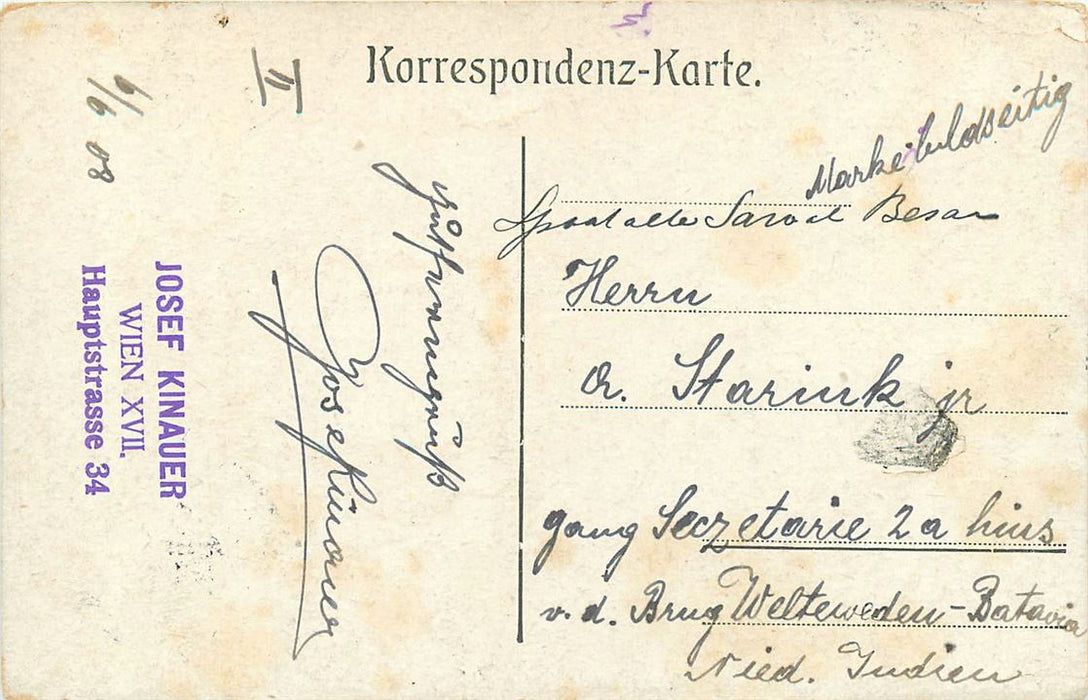 Korrespondenz-Karte.
II
6/6 08
JOSEF KINAUER
WIEN XVII.
Hauptstrasse 34
Josef Kinauer
Marke bildseitig
Sawah Besar
Herrn
A. Starink jr
gang Secretarie 2a huis
v. d. Brug Welteweden - Batavia
Nied. Indien